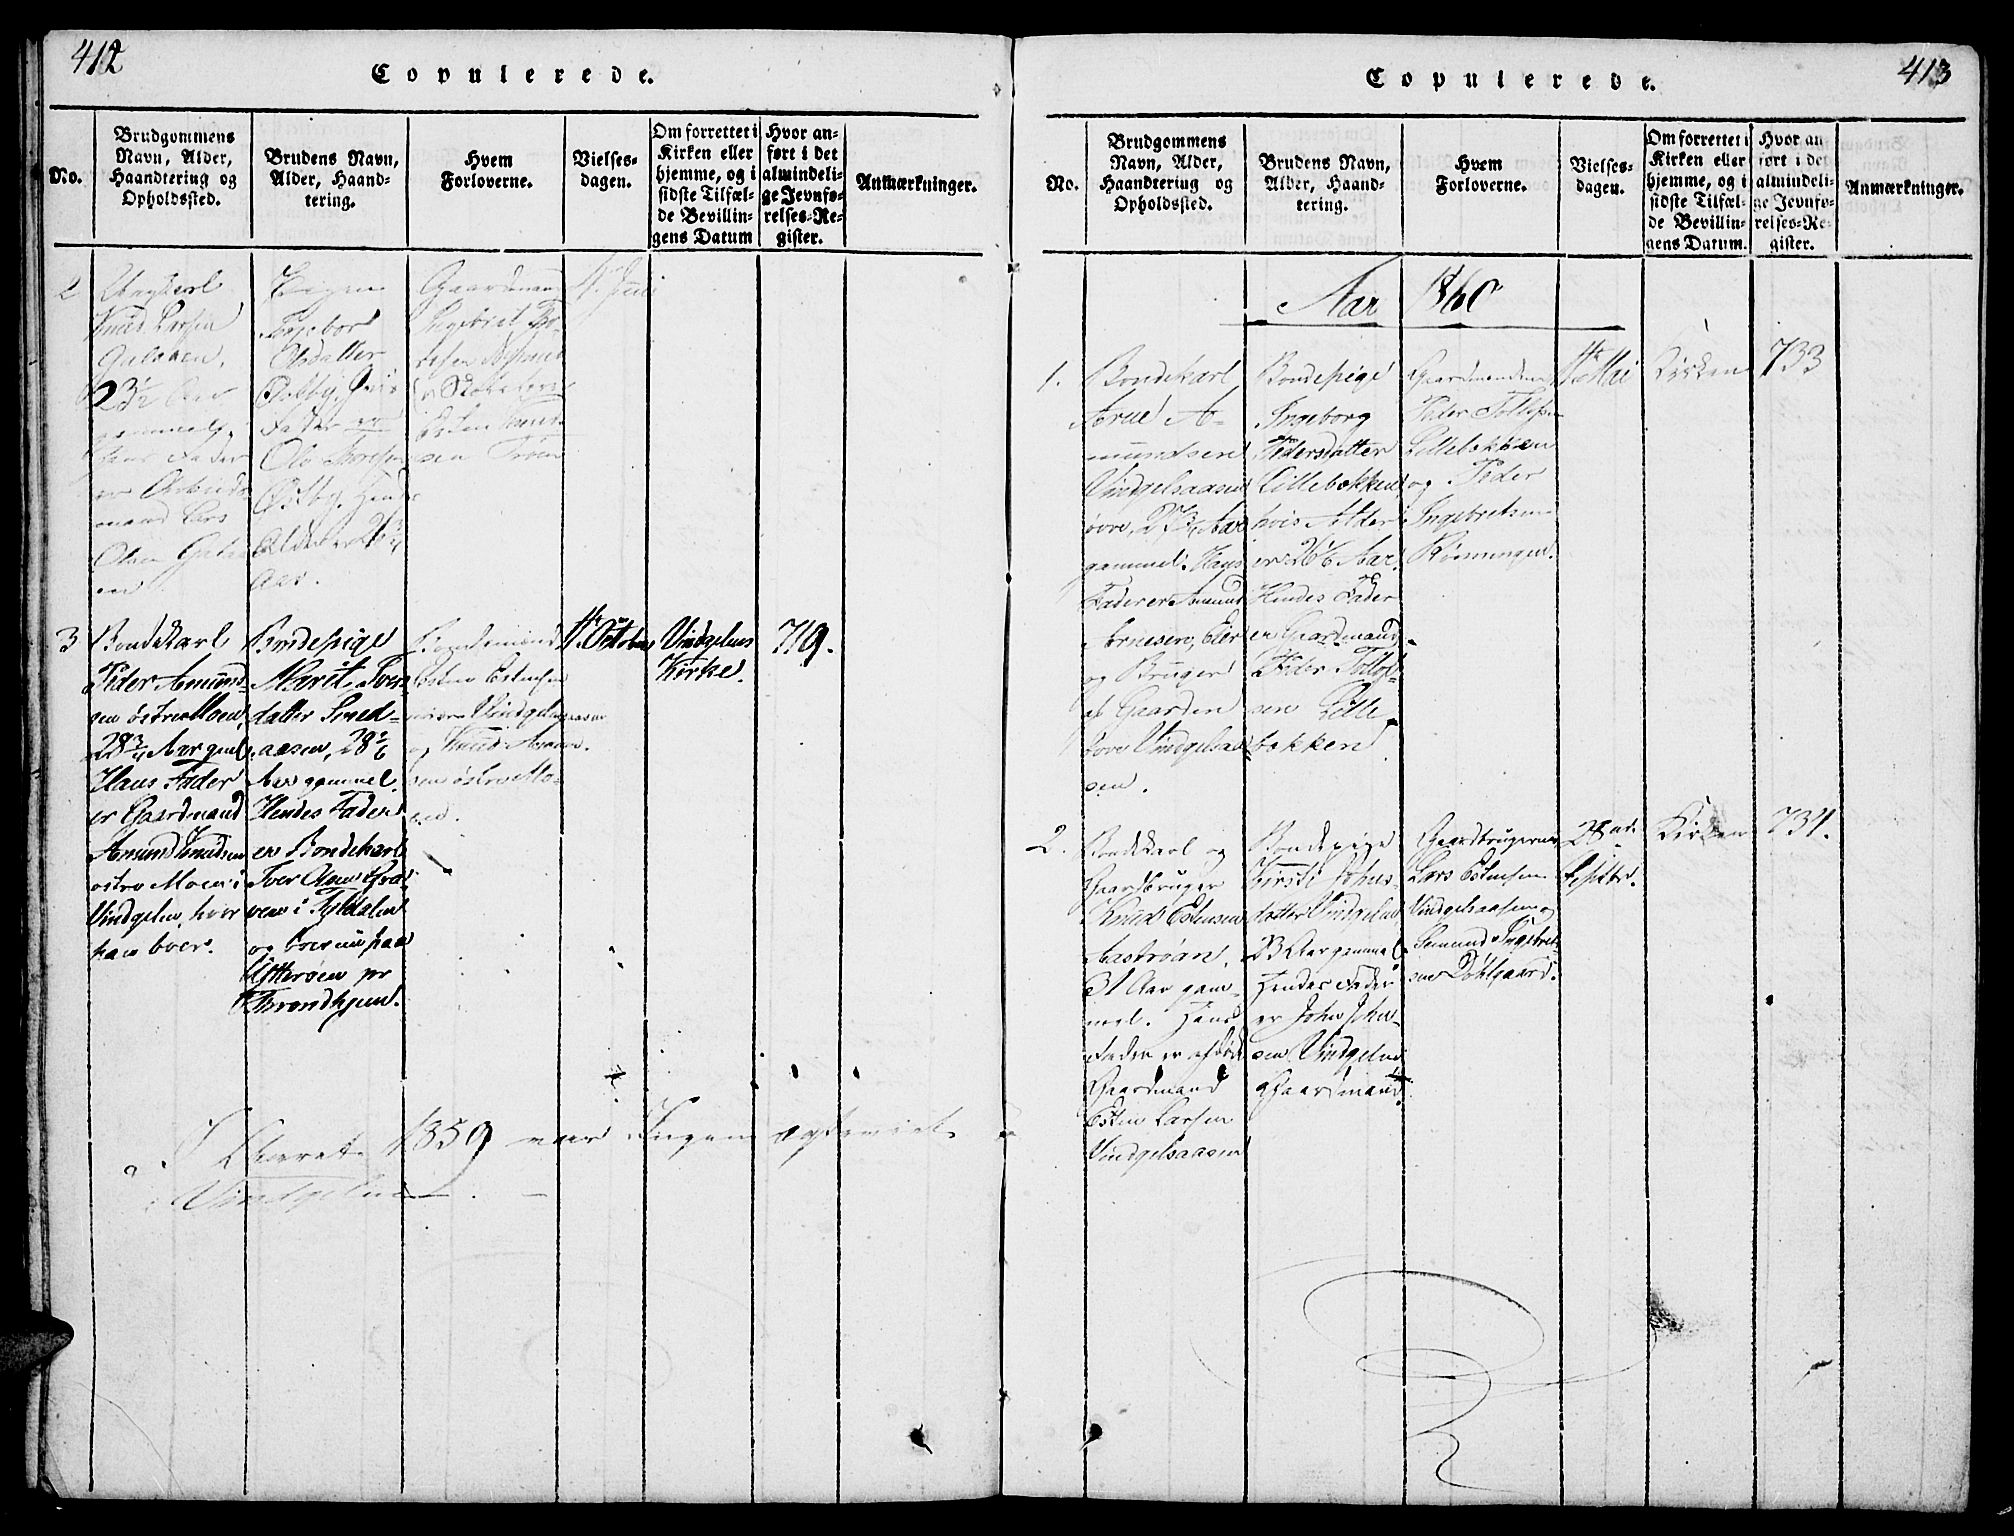 412
Copulerede.
No.
Brudgommens
Navn, Alder,
Haandtering og
Opholdssted.
Brudens Navn,
Alder, Haand-
tering.
Hvem
Forloverne.
Vielses-
dagen.
Om forrettet i
Kirken eller
hjemme, og i
sidste Tilfæl-
de Bevillin-
gens Datum
Hvor an-
ført i det
almindeli-
ge Jevnfø-
relses-Re-
gister.
Anmærkninger.
2
Ungkarl
Knud Larsen
23½ Aar
gammel,
Hans Fader
er Arbeids
mand Lars
Olsen
en
Pigen
Ingebor
Olsdatter
Østby,
Fader er
Ole
Østby. Hendes
Alder er 26¾
Aar.
Gaardmand
Ingebret To-
Esten
sen Troen
4. Juni
3
Bondekarl
Peder Amund-
sen østre Moen,
28¾ Aar gml.
Hans Fader
er Gaardmand
Amund Knudsen
østre Moen i
Vindgelen, hvor
han boer.
Bondepige
Marit Iver-
datter Smed-
aasen, 28½
Aar gammel.
Hendes Fader
er Bondekarl
Iver Olsen
ven i Tyldalen
og boer nu paa
Ytterøen pr
Throndhjem.
Esten Estensen
Vindgelsaasen
og Knud Amund-
sen østre Mo-
en.
4. October
Vindgelens
Kirke.
719.
I Aaret 1859 var Ingen copuleret
i Vindgelen
413
Copulerede.
No.
Brudgommens
Navn, Alder,
Haandtering og
Opholdssted.
Brudens Navn,
Alder, Haand-
tering.
Hvem
Forloverne.
Vielses-
dagen.
Om forrettet i
Kirken eller
hjemme, og i
sidste Tilfæl-
de Bevillin-
gens Datum.
Hvor an
ført i det
almindeli-
ge Jevnfø-
relses-Re-
gister.
Anmærkninger.
Aar 1860
1.
Bondekarl
Arne A-
mundsen
Vindgelsaasen
øvre, 27¾ Aar
gammel. Hans
Fader er Amund
Arnesen, Eier
og Bruger
af Gaarden
øvre Vindgelsaa
sen.
Bondepige
Ingeborg
Pedersdatter
Lillebekken,
hvis Alder
er 26½ Aar.
Hendes Fader
er Gaardmand
Peder Tollef-
sen Lille
bekken
Gaardmændene
Peder Tollefsen
Lillebekken
og Peder
Ingebretsen
Rønningen.
4de Mai
Kirken
733
2.
Bondekarl og
Gaardbruger
Knud Estensen
Aastrøan,
31 Aar gam-
mel. Hans
Fader er afdøde
Gaardmand
Esten Larsen
Vindgelsaasen
Bondepige
Kirsti Johns-
datter Vindgelen
23 Aar gammel
Hendes Fader
er John John-
sen Vindgelen
Gaardmand.
Gaardbrugerne
Lars Estensen
Vindgelsaasen og
Semund Ingebret-
sen Døhlgaard.
28de
Septbr.
Kirken
734.